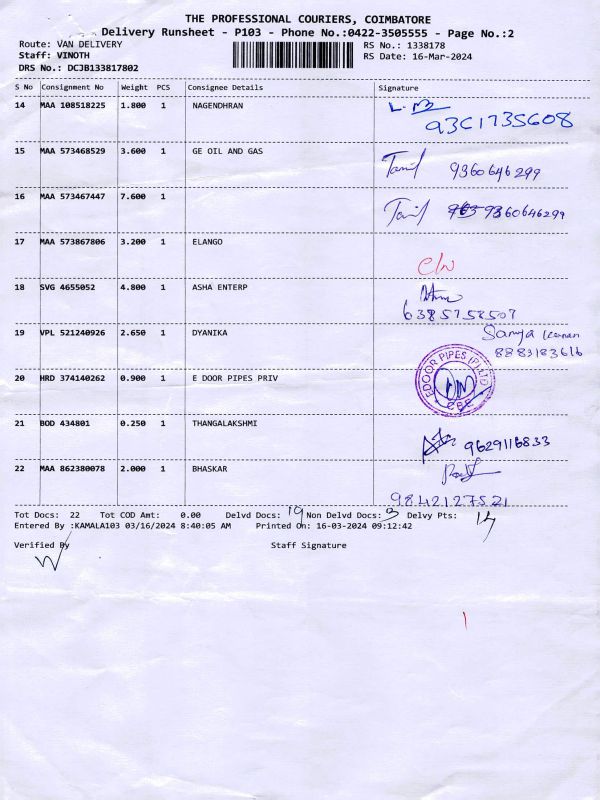 THE PROFESSIONAL COURIERS, COIMBATORE
Delivery Runsheet - P103 - Phone No.:0422-3505555 - Page No.:2
Route: VAN DELIVERY RS No.: 1338178
Staff: VINOTH RS Date: 16-Mar-2024
DRS No.: DCJB133817802
S No Consignment No Weight PCS Consignee Details Signature
14 MAA 108518225 1.800 1 NAGENDHRAN
9361735608
15 MAA 573468529 3.600 1 GE OIL AND GAS Tamil 9360646299
16 MAA 573467447 7.600 1 Tamil 9360646299
17 MAA 573867806 3.200 1 ELANGO
18 SVG 4655052 4.800 1 ASHA ENTERP
6385758507
19 VPL 521240926 2.650 1 DYANIKA Sanya
8883183616
20 HRD 374140262 0.900 1 E DOOR PIPES PRIV EDOOR PIPES (P) LTD CBE
21 BOD 434801 0.250 1 THANGALAKSHMI 9629116833
22 MAA 862380078 2.000 1 BHASKAR
9842127521
Tot Docs: 22 Tot COD Amt: 0.00 Delvd Docs: 19 Non Delvd Docs: 3 Delvy Pts: 14
Entered By :KAMALA103 03/16/2024 8:40:05 AM Printed On: 16-03-2024 09:12:42
Verified By Staff Signature